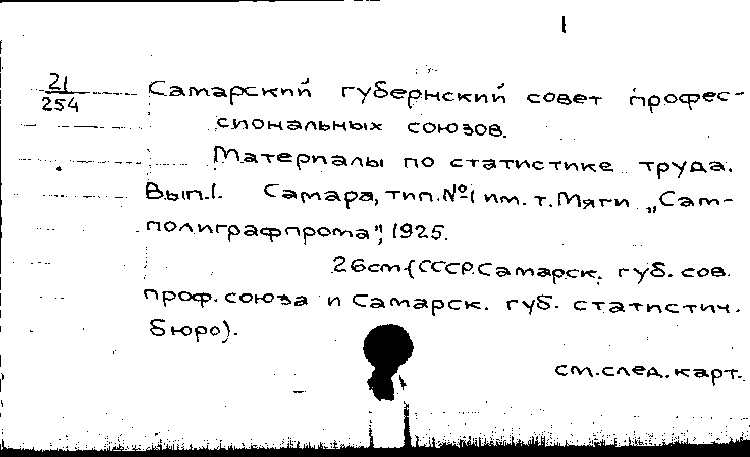 1
21
254
Самарский губернский совет профес-
сиональных союзов.
Материалы по статистике труда.
Вып.1. Самара, тип.№1 им. т. Мяги „Сам-
полиграфпрома", 1925.
26см (СССР. Самарск. губ. сов.
проф. союза и Самарск. губ. статистич.
бюро).
см. след. карт.